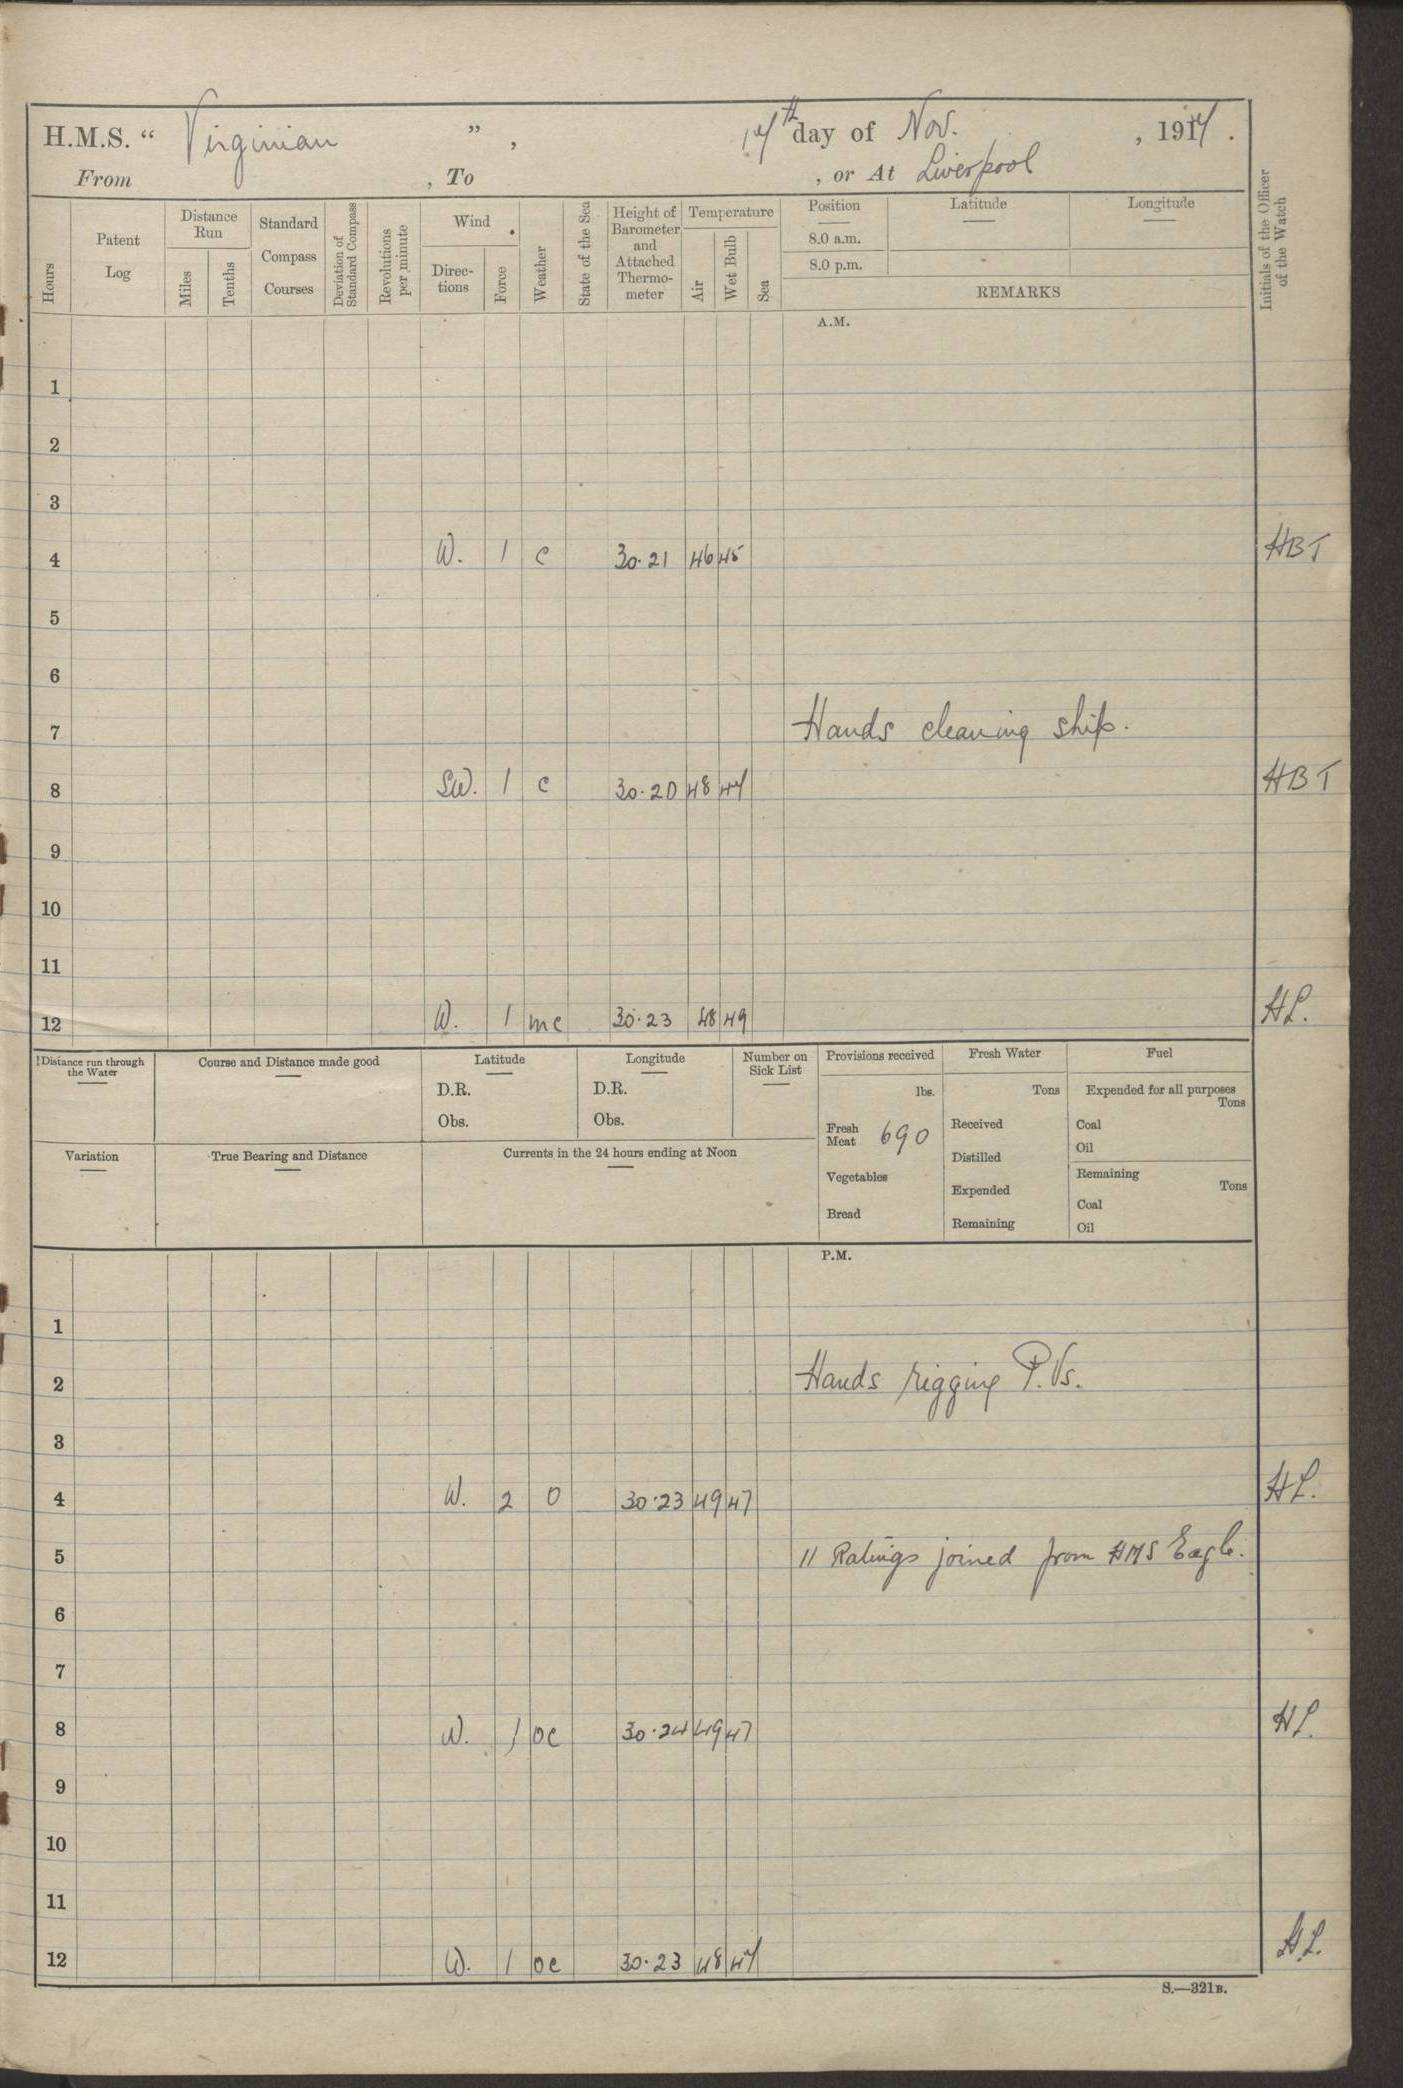 H.M.S. “ Virginian ” , 17th day of Nov. , 1917 .
From , To , or At Liverpool
Hours
Patent Log
Distance Run
Miles
Tenths
Standard Compass Courses
Deviation of Standard Compass
Revolutions per minute
Wind
Direc-tions
Force
Weather
State of the Sea
Height of Barometer and Attached Thermo-meter
Temperature
Air
Wet Bulb
Sea
Position
8.0 a.m.
8.0 p.m.
Latitude
Longitude
REMARKS
Initials of the Officer of the Watch
A.M.
1
2
3
4 W. 1 c 30.21 46 45 HBT
5
6
7 Hands cleaning ship.
8 SW. 1 c 30.20 48 47 HBT
9
10
11
12 W. 1 mc 30.23 48 49 HL.
Distance run through the Water
Course and Distance made good
Latitude
D.R.
Obs.
Longitude
D.R.
Obs.
Number on Sick List
Provisions received
lbs.
Fresh Meat 690
Vegetables
Bread
Fresh Water
Tons
Received
Distilled
Expended
Remaining
Fuel
Expended for all purposes
Tons
Coal
Oil
Remaining
Tons
Coal
Oil
Variation
True Bearing and Distance
Currents in the 24 hours ending at Noon
P.M.
1
2 Hands rigging P.Vs.
3
4 W. 2 0 30.23 49 47 HL.
5 11 Ratings joined from HMS Eagle.
6
7
8 W. 1 oc 30.24 49 47 HL.
9
10
11
12 W. 1 oc 30.23 48 47 HL.
S.—321B.